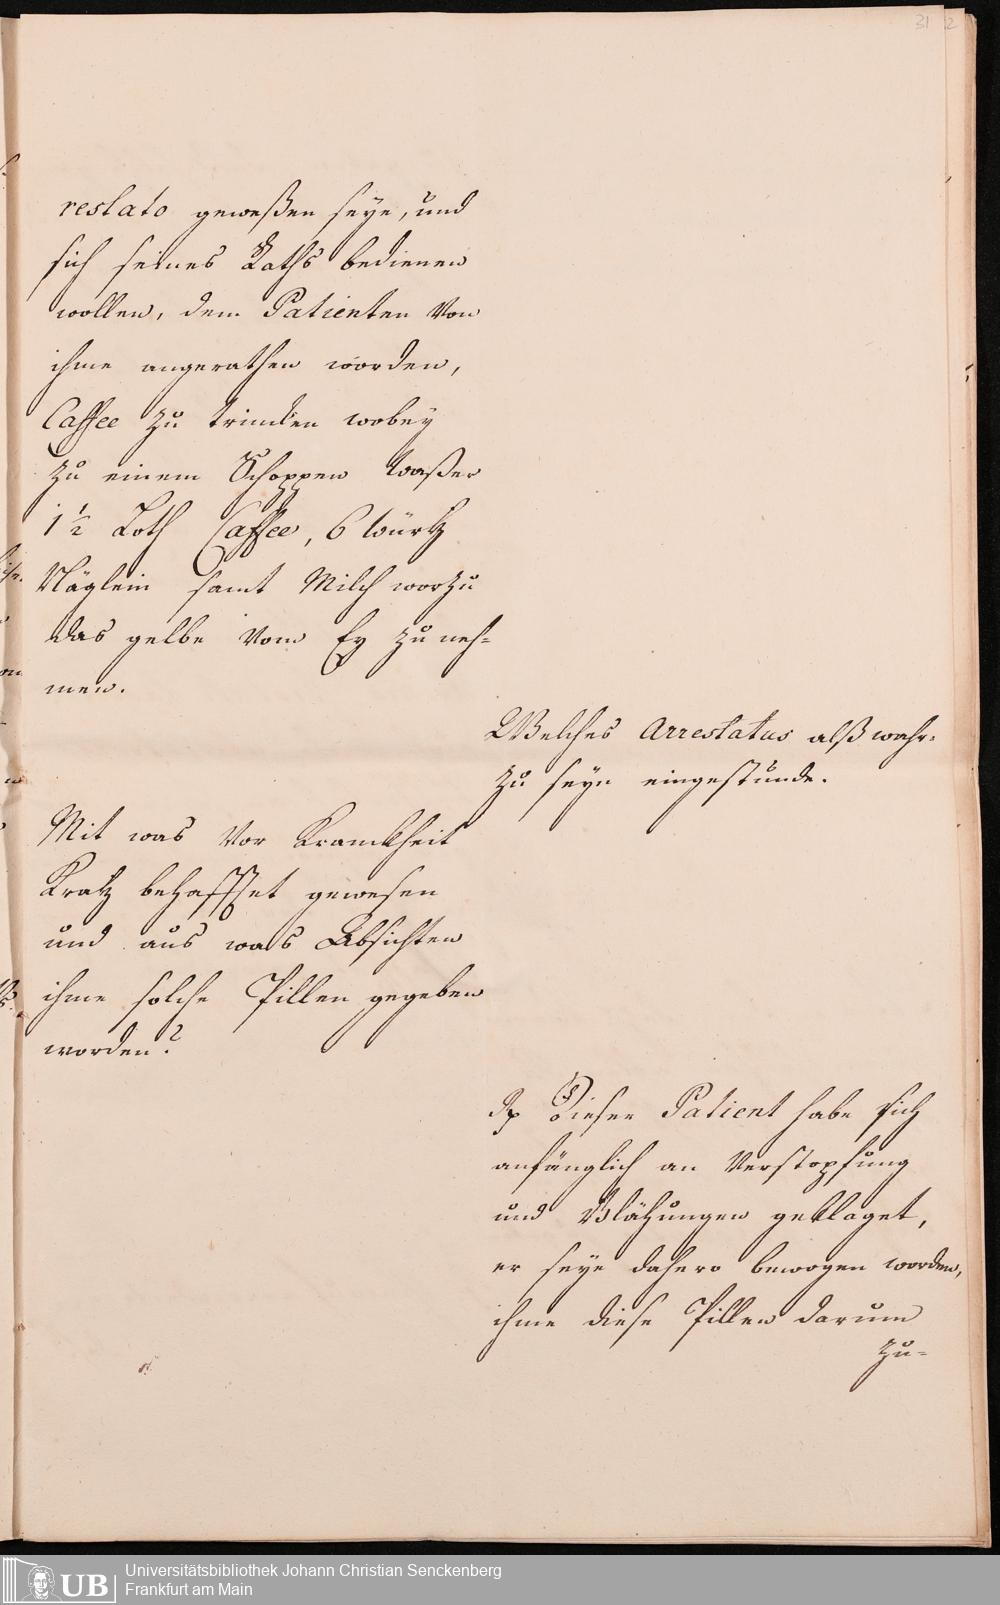 31
2
restato geweßen seye, und
sich seines Raths bedienen
wollen, dem Patienten von
ihme angerathen worden,
Caffee zu trincken wobey
zu einem Schoppen waßer
1 1/2 Loth Caffee, 6 würtz
Näglein samt Milch worzu
das gelbe vom Ey zu neh=
men.
Welches Arrestatus alß wahr
zu seyn eingestunde.
Mit was vor Kranckheit
Kratz behafftet gewesen
und aus was Absichten
ihme solche Pillen gegeben
worden?
Dieser Patient habe sich
anfänglich an Verstopfung
und Blähungen geklaget,
er seye dahero bewogen worden,
ihme diese Pillen darum
zu=
UB
Universitätsbibliothek Johann Christian Senckenberg
Frankfurt am Main